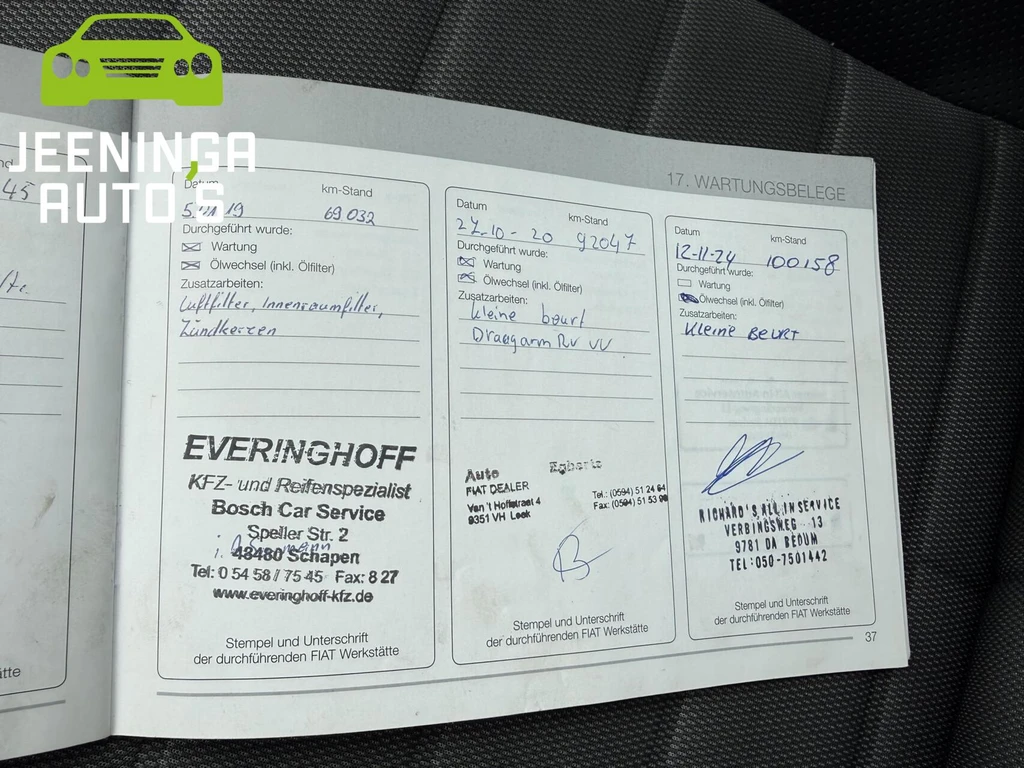 JEENINGA
AUTO'S
17. WARTUNGSBELEGE
45
Datum
km-Stand
19
69 032
Durchgeführt wurde:
Wartung
Ölwechsel (inkl. Ölfilter)
Zusatzarbeiten:
Luftfilter, Innenraumfilter,
Zündkerzen
EVERINGHOFF
KFZ- und Reifenspezialist
Bosch Car Service
Speller Str. 2
48480 Schapen
Tel: 0 54 58 / 75 45 Fax: 8 27
www.everinghoff-kfz.de
Stempel und Unterschrift
der durchführenden FIAT Werkstätte
Datum
km-Stand
27-10-20 92047
Durchgeführt wurde:
Wartung
Ölwechsel (inkl. Ölfilter)
Zusatzarbeiten:
kleine beurt
Draagarm RV VV
Auto Egberts
FIAT DEALER
Van 't Hoffstraat 4
9351 VH Leek
Tel.: (0594) 51 24 64
Fax: (0594) 51 53
Stempel und Unterschrift
der durchführenden FIAT Werkstätte
Datum
km-Stand
12-11-24 100158
Durchgeführt wurde:
Wartung
Ölwechsel (inkl. Ölfilter)
Zusatzarbeiten:
KLEINE BEURT
RICHARD'S ALL IN SERVICE
VERBINGSWEG 13
9781 DA BEDUM
TEL: 050-7501442
Stempel und Unterschrift
der durchführenden FIAT Werkstätte
37